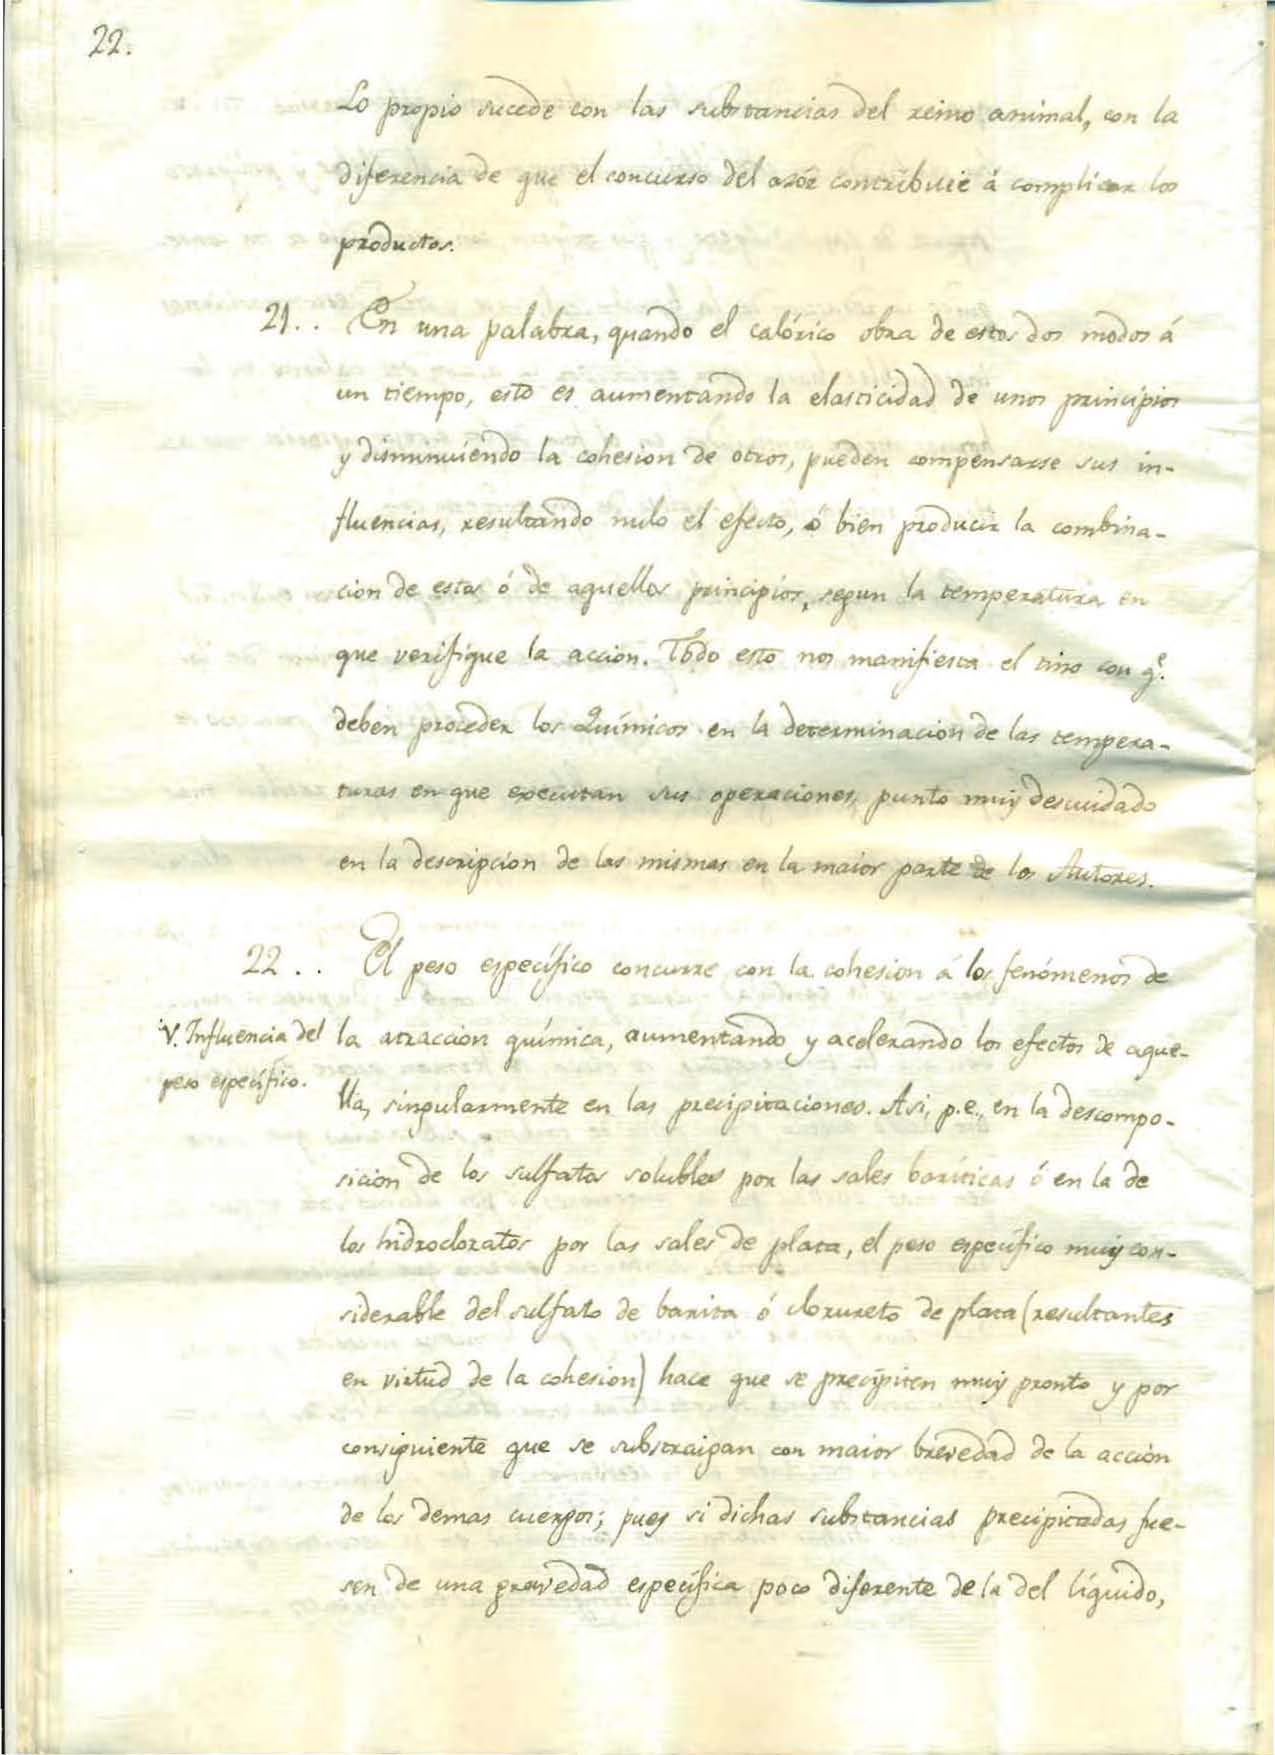 22.
Lo propio sucede con las substancias del reino animal, con la
diferencia de que el concurso del azóe contribuie á complicar los
productos.
21.. En una palabra, quando el calórico obra de estos dos modos á
un tiempo, esto es aumentando la elasticidad de unos principios
y disminuiendo la cohesion de otros, pueden compensarse sus in-
fluencias, resultando nulo el efecto, ó bien producir la combina-
cion de estos ó de aquellos principios, segun la temperatura en
que verifique la accion. Todo esto nos manifiesta el tino con q.e
deben proceder los Químicos en la determinacion de las tempera-
turas en que executan sus operaciones, punto muy descuidado
en la descripcion de las mismas en la maior parte de los Autores.
22.. El peso específico concurre con la cohesion á los fenómenos de
V. Influencia del
peso específico.
la atraccion química, aumentando y acelerando los efectos de aque-
lla, singularmente en las precipitaciones. Asi, p.e., en la descompo-
sicion de los sulfatos solubles por las sales baríticas ó en la de
los hidrocloratos por las sales de plata, el peso específico muy con-
siderable del sulfato de barita ó clorureto de plata (resultantes
en virtud de la cohesion) hace que se precipiten muy pronto y por
consiguiente que se substraigan con maior brevedad de la acción
de los demas cuerpos; pues si dichas substancias precipitadas fue-
sen de una gravedad específica poco diferente de la del líquido,